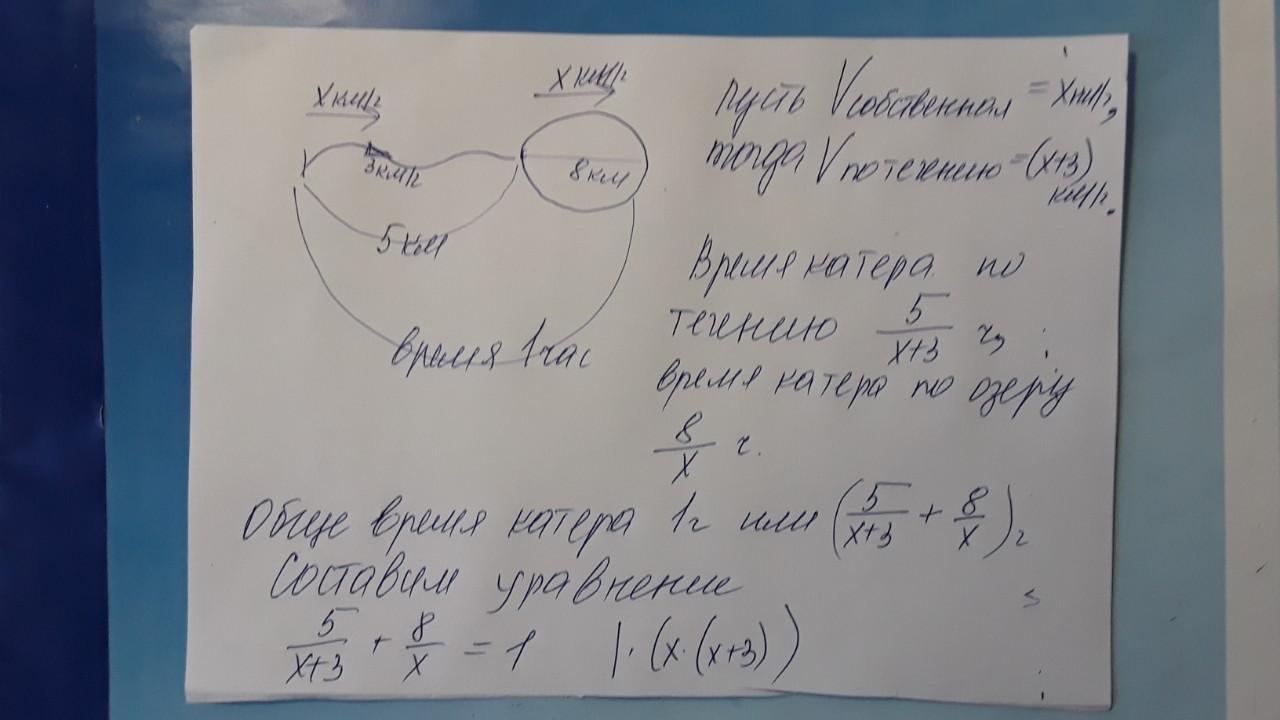 x км/ч
x км/ч
3 км/ч
8 км
5 км
время 1 час
пусть Vсобственная = x км/ч,
тогда Vпотечению = (x+3)
км/ч.
Время катера по
течению 5/(x+3) ч,
время катера по озеру
8/x ч.
Обще время катера 1 ч или (5/(x+3) + 8/x) ч
Составим уравнение
5/(x+3) + 8/x = 1 |·(x·(x+3))